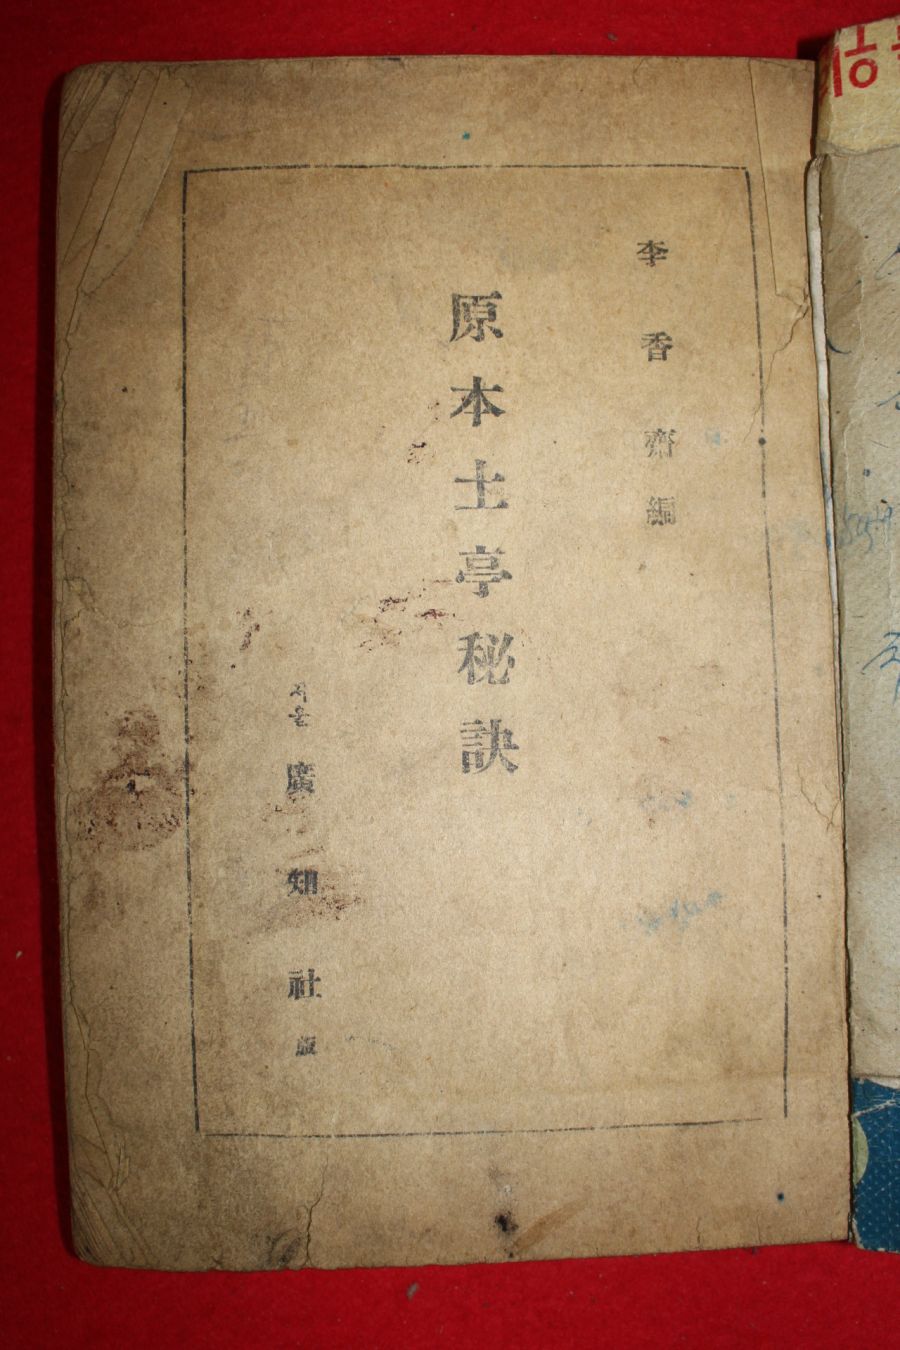 李香齋編
原本土亭秘訣
서울 廣知社版